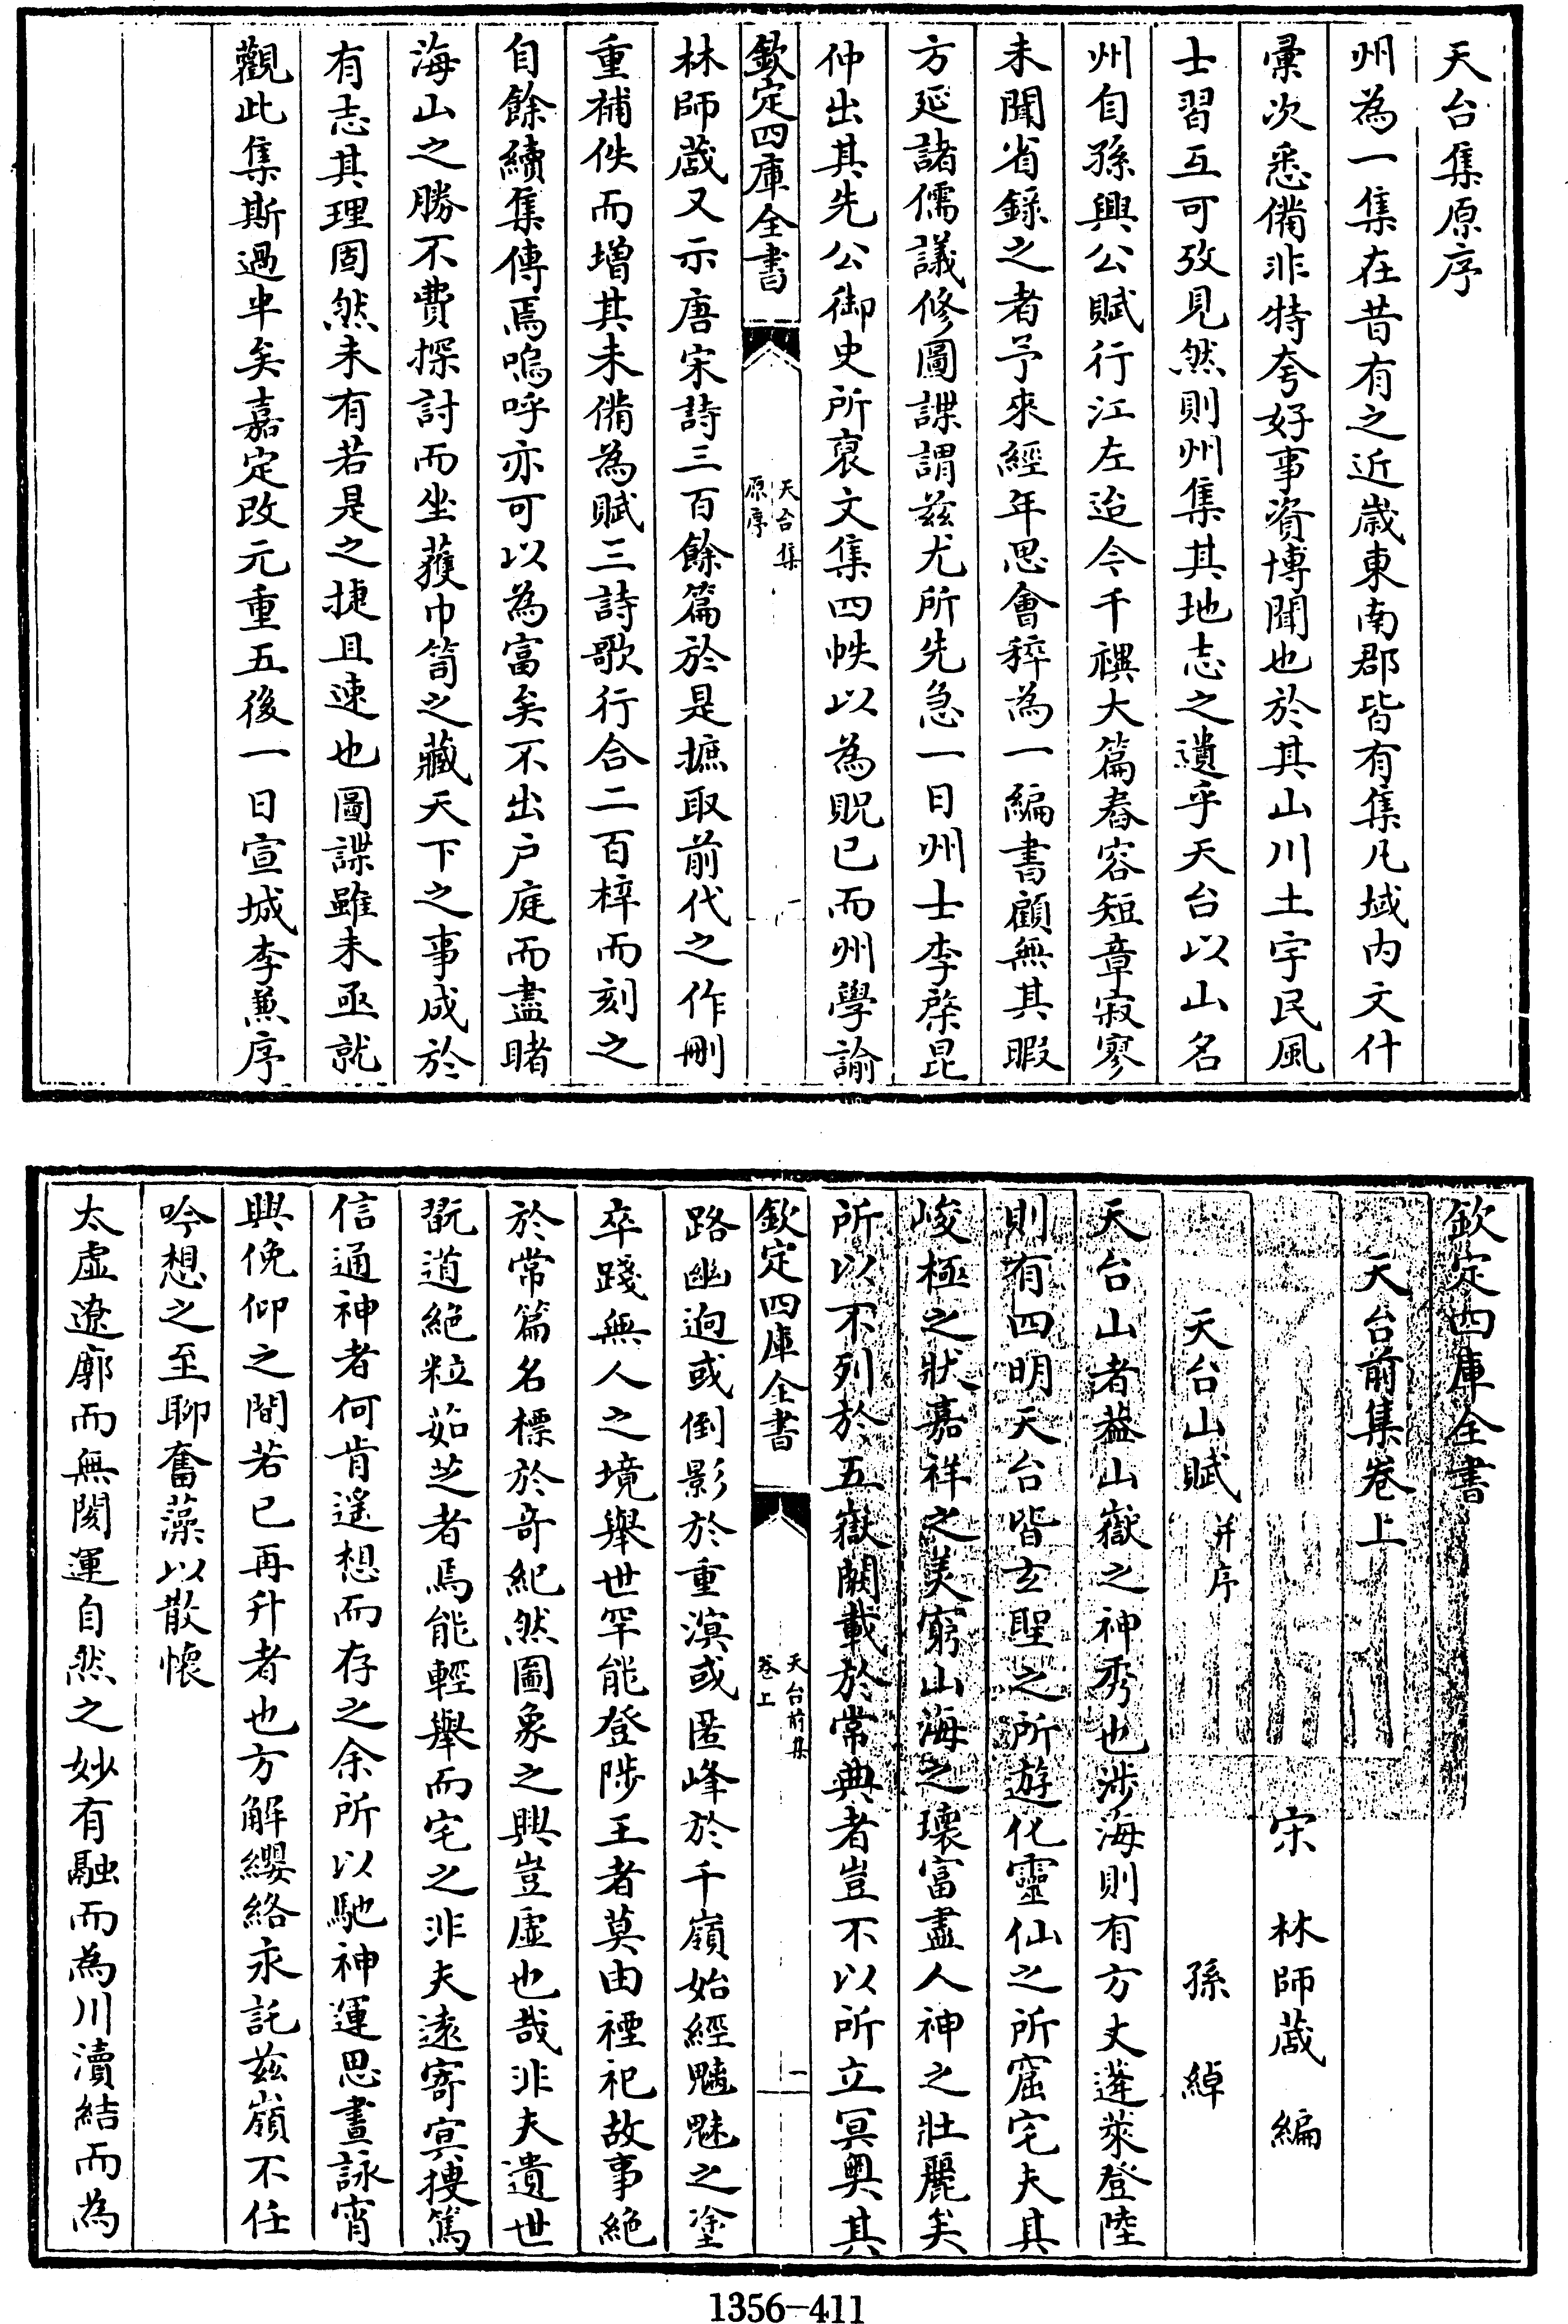 天台集原序
州為一集在昔有之近嵗東南郡皆有集凡域内文什
彚次悉備非特夸好事資博聞也於其山川土宇民風
士習互可攷見然則州集其地志之遺乎天台以山名
州自孫興公賦行江左迨今千禩大篇舂容短章寂寥
未聞省錄之者予來經年思會稡為一編書顧無其暇
方延諸儒議修圖諜謂兹尤所先急一日州士李棨昆
仲出其先公御史所裒文集四帙以為貺已而州學諭
欽定四庫全書
天台集
原序
一
林師蒧又示唐宋詩三百餘篇於是摭取前代之作刪
重補佚而增其未備為賦三詩歌行合二百梓而刻之
自餘續集傳焉嗚呼亦可以為富矣不出户庭而盡睹
海山之勝不費探討而坐蒦巾笥之藏天下之事成於
有志其理固然未有若是之捷且速也圖諜雖未亟就
觀此集斯過半矣嘉定改元重五後一日宣城李兼序
欽定四庫全書
天台前集卷上
宋 林師蒧 編
天台山賦 并序 孫 綽
天台山者葢山嶽之神秀也涉海則有方丈蓬萊登陸
則有四明天台皆玄聖之所遊化靈仙之所窟宅夫其
峻極之狀嘉祥之美窮山海之瓌富盡人神之壯麗矣
所以不列於五嶽闕載於常典者豈不以所立冥奥其
欽定四庫全書
天台前集
卷上
一
路幽迥或倒影於重溟或匿峰於千嶺始經魑魅之塗
卒踐無人之境舉世罕能登陟王者莫由禋祀故事絶
於常篇名標於竒紀然圖象之興豈虚也哉非夫遺世
翫道絶粒茹芝者焉能輕舉而宅之非夫逺寄㝠搜篤
信通神者何肯遥想而存之余所以馳神運思晝詠宵
興俛仰之間若已再升者也方解纓絡永託兹嶺不任
吟想之至聊奮藻以散懷
太虚遼廓而無閡運自然之妙有融而為川瀆結而為
1356-411